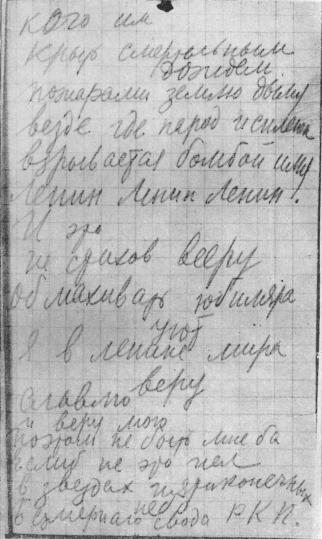 кого им
крыть смертельным
дождем
пожарами землю дымя
везде где народ испленен
взрывается бомбой имя
Ленин Ленин Ленин!
И это
не стихов вееру
обмахивать юбиляра
уют
Я в Ленине мира
веру
славлю
и веру мою
поэтом не быть мне бы
если б не это пел
в звездах пятиконечных
небо
безмерного свода РКП.